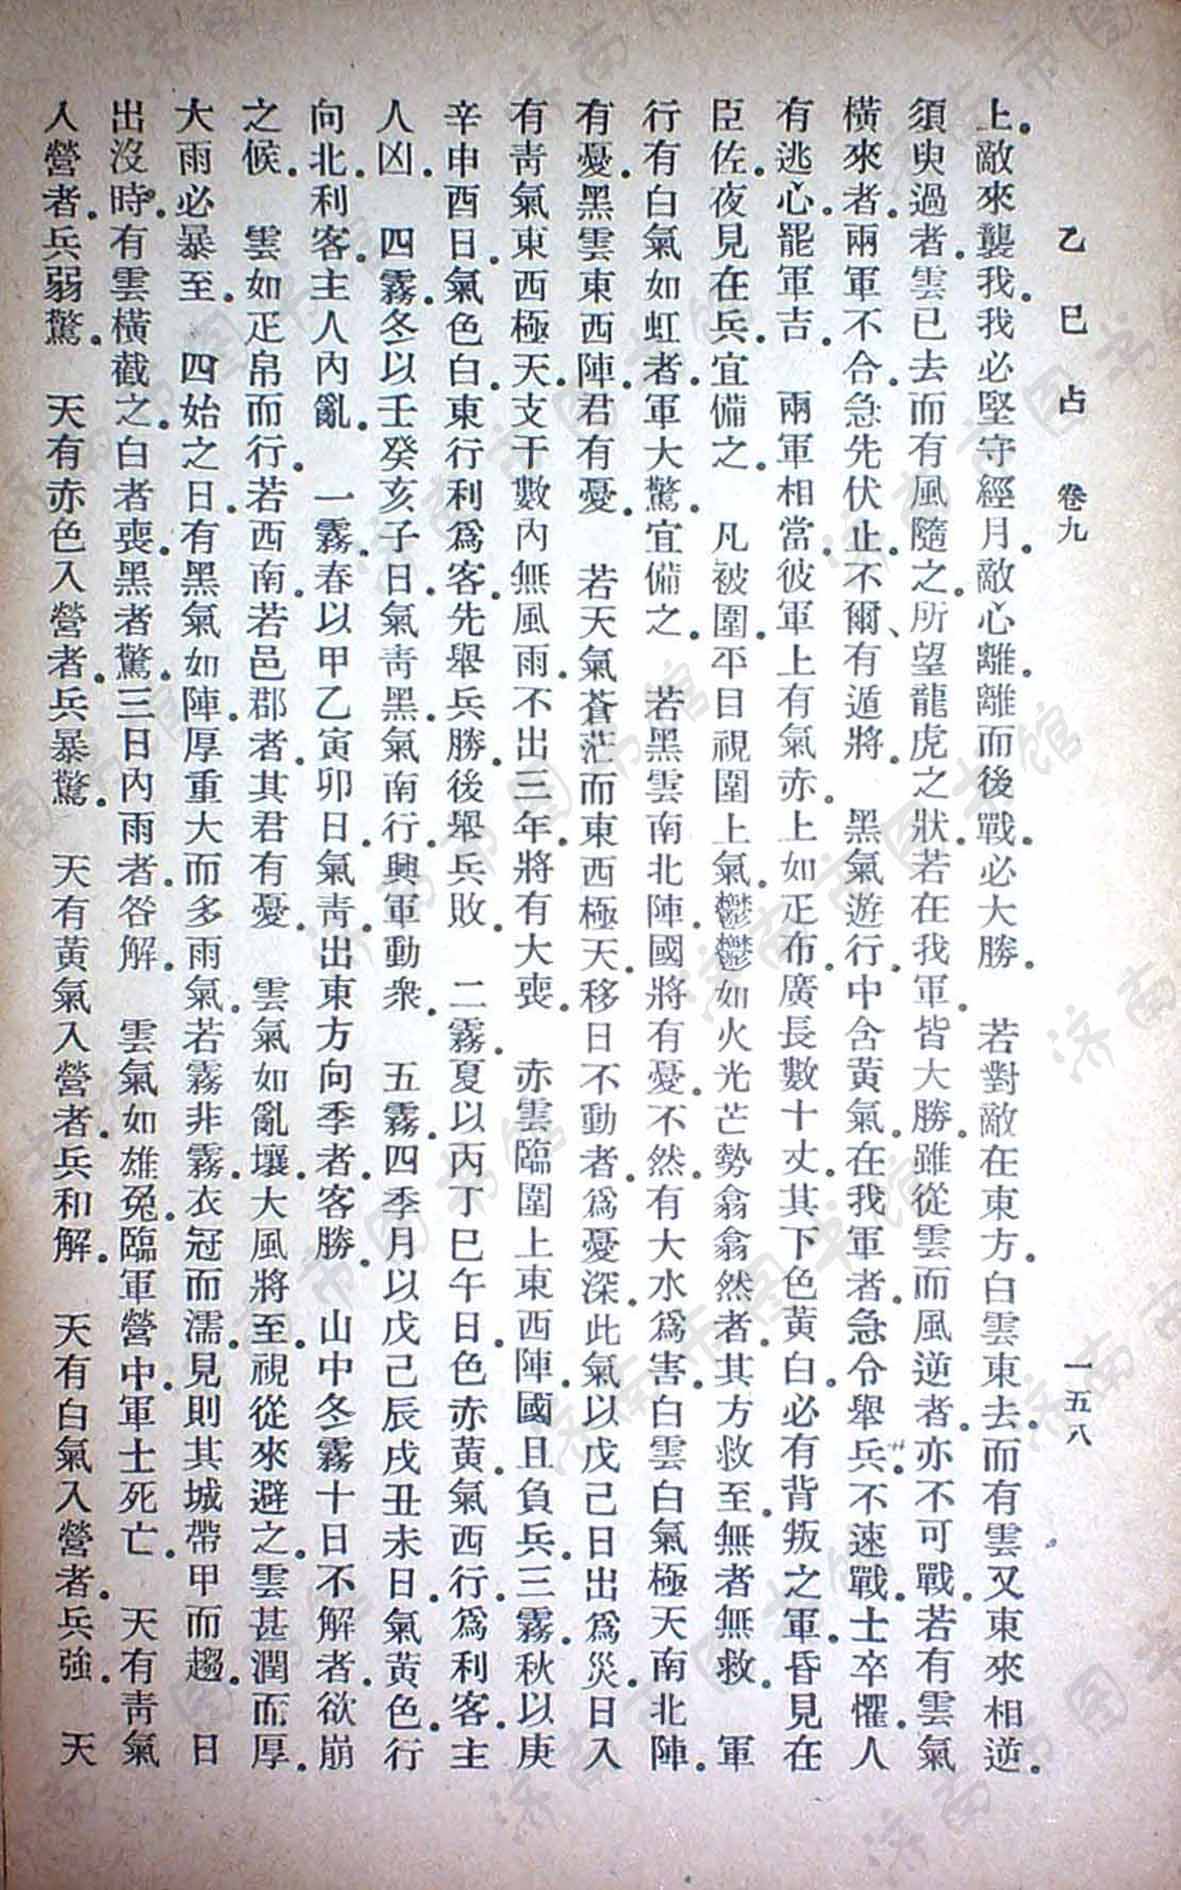 乙巳占 卷九 一五八
上。敵來襲我。我必堅守經月。敵心離。離而後戰。必大勝。 若對敵在東方。白雲東去。而有雲又東來相逆。
須臾過者。雲已去而有風隨之。所望龍虎之狀。若在我軍。皆大勝。雖從雲而風逆者。亦不可戰。若有雲氣
橫來者。兩軍不合。急先伏止。不爾、有遁將。 黑氣遊行。中含黃氣。在我軍者。急令舉兵。不速戰。士卒懼。人
有逃心。罷軍吉。 兩軍相當。彼軍上有氣赤。上如疋布。廣長數十丈。其下色黃白。必有背叛之軍。昏見在
臣佐。夜見在兵。宜備之。 凡被圍。平旦視圍上氣。鬱鬱如火光芒勢翕翕然者。其方救至。無者無救。 軍
行有白氣如虹者。軍大驚。宜備之。 若黑雲南北陣。國將有憂。不然。有大水爲害。白雲白氣極天南北陣。
有憂。黑雲東西陣。君有憂。 若天氣蒼茫而東西極天。移日不動者。爲憂深。此氣以戊己日出爲災。日入
有靑氣東西極天。支干數內無風雨。不出三年。將有大喪。 赤雲臨圍上東西陣。國且負兵。三霧。秋以庚
辛申酉日。氣色白。東行利爲客。先舉兵勝。後舉兵敗。 二霧。夏以丙丁巳午日。色赤黃。氣西行。爲利客。主
人凶。 四霧。冬以壬癸亥子日。氣靑黑。氣南行。興軍動衆。 五霧。四季月以戊己辰戌丑未日。氣黃色。行
向北。利客。主人內亂。 一霧。春以甲乙寅卯日。氣靑。出東方向季者。客勝。 山中冬霧十日不解者。欲崩
之候。 雲如疋帛而行。若西南。若邑郡者。其君有憂。 雲氣如亂壤。大風將至。視從來避之。雲甚潤而厚。
大雨必暴至。 四始之日。有黑氣如陣。厚重大而多雨。氣若霧非霧。衣冠而濡。見則其城帶甲而趨。 日
出沒時。有雲橫截之。白者喪。黑者驚。三日內雨者。咎解。 雲氣如雄兔。臨軍營中。軍士死亡。 天有靑氣
入營者。兵弱驚。 天有赤色入營者。兵暴驚。 天有黃氣入營者。兵和解。 天有白氣入營者。兵強。 天